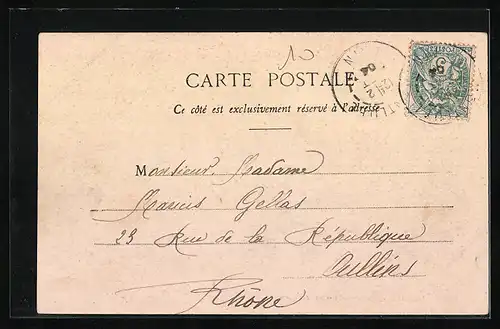 10
CARTE POSTALE
Ce côté est exclusivement réservé à l'adresse
Monsieur, Madame
Marius Gellas
23 Rue de la République
Oullins
Rhône